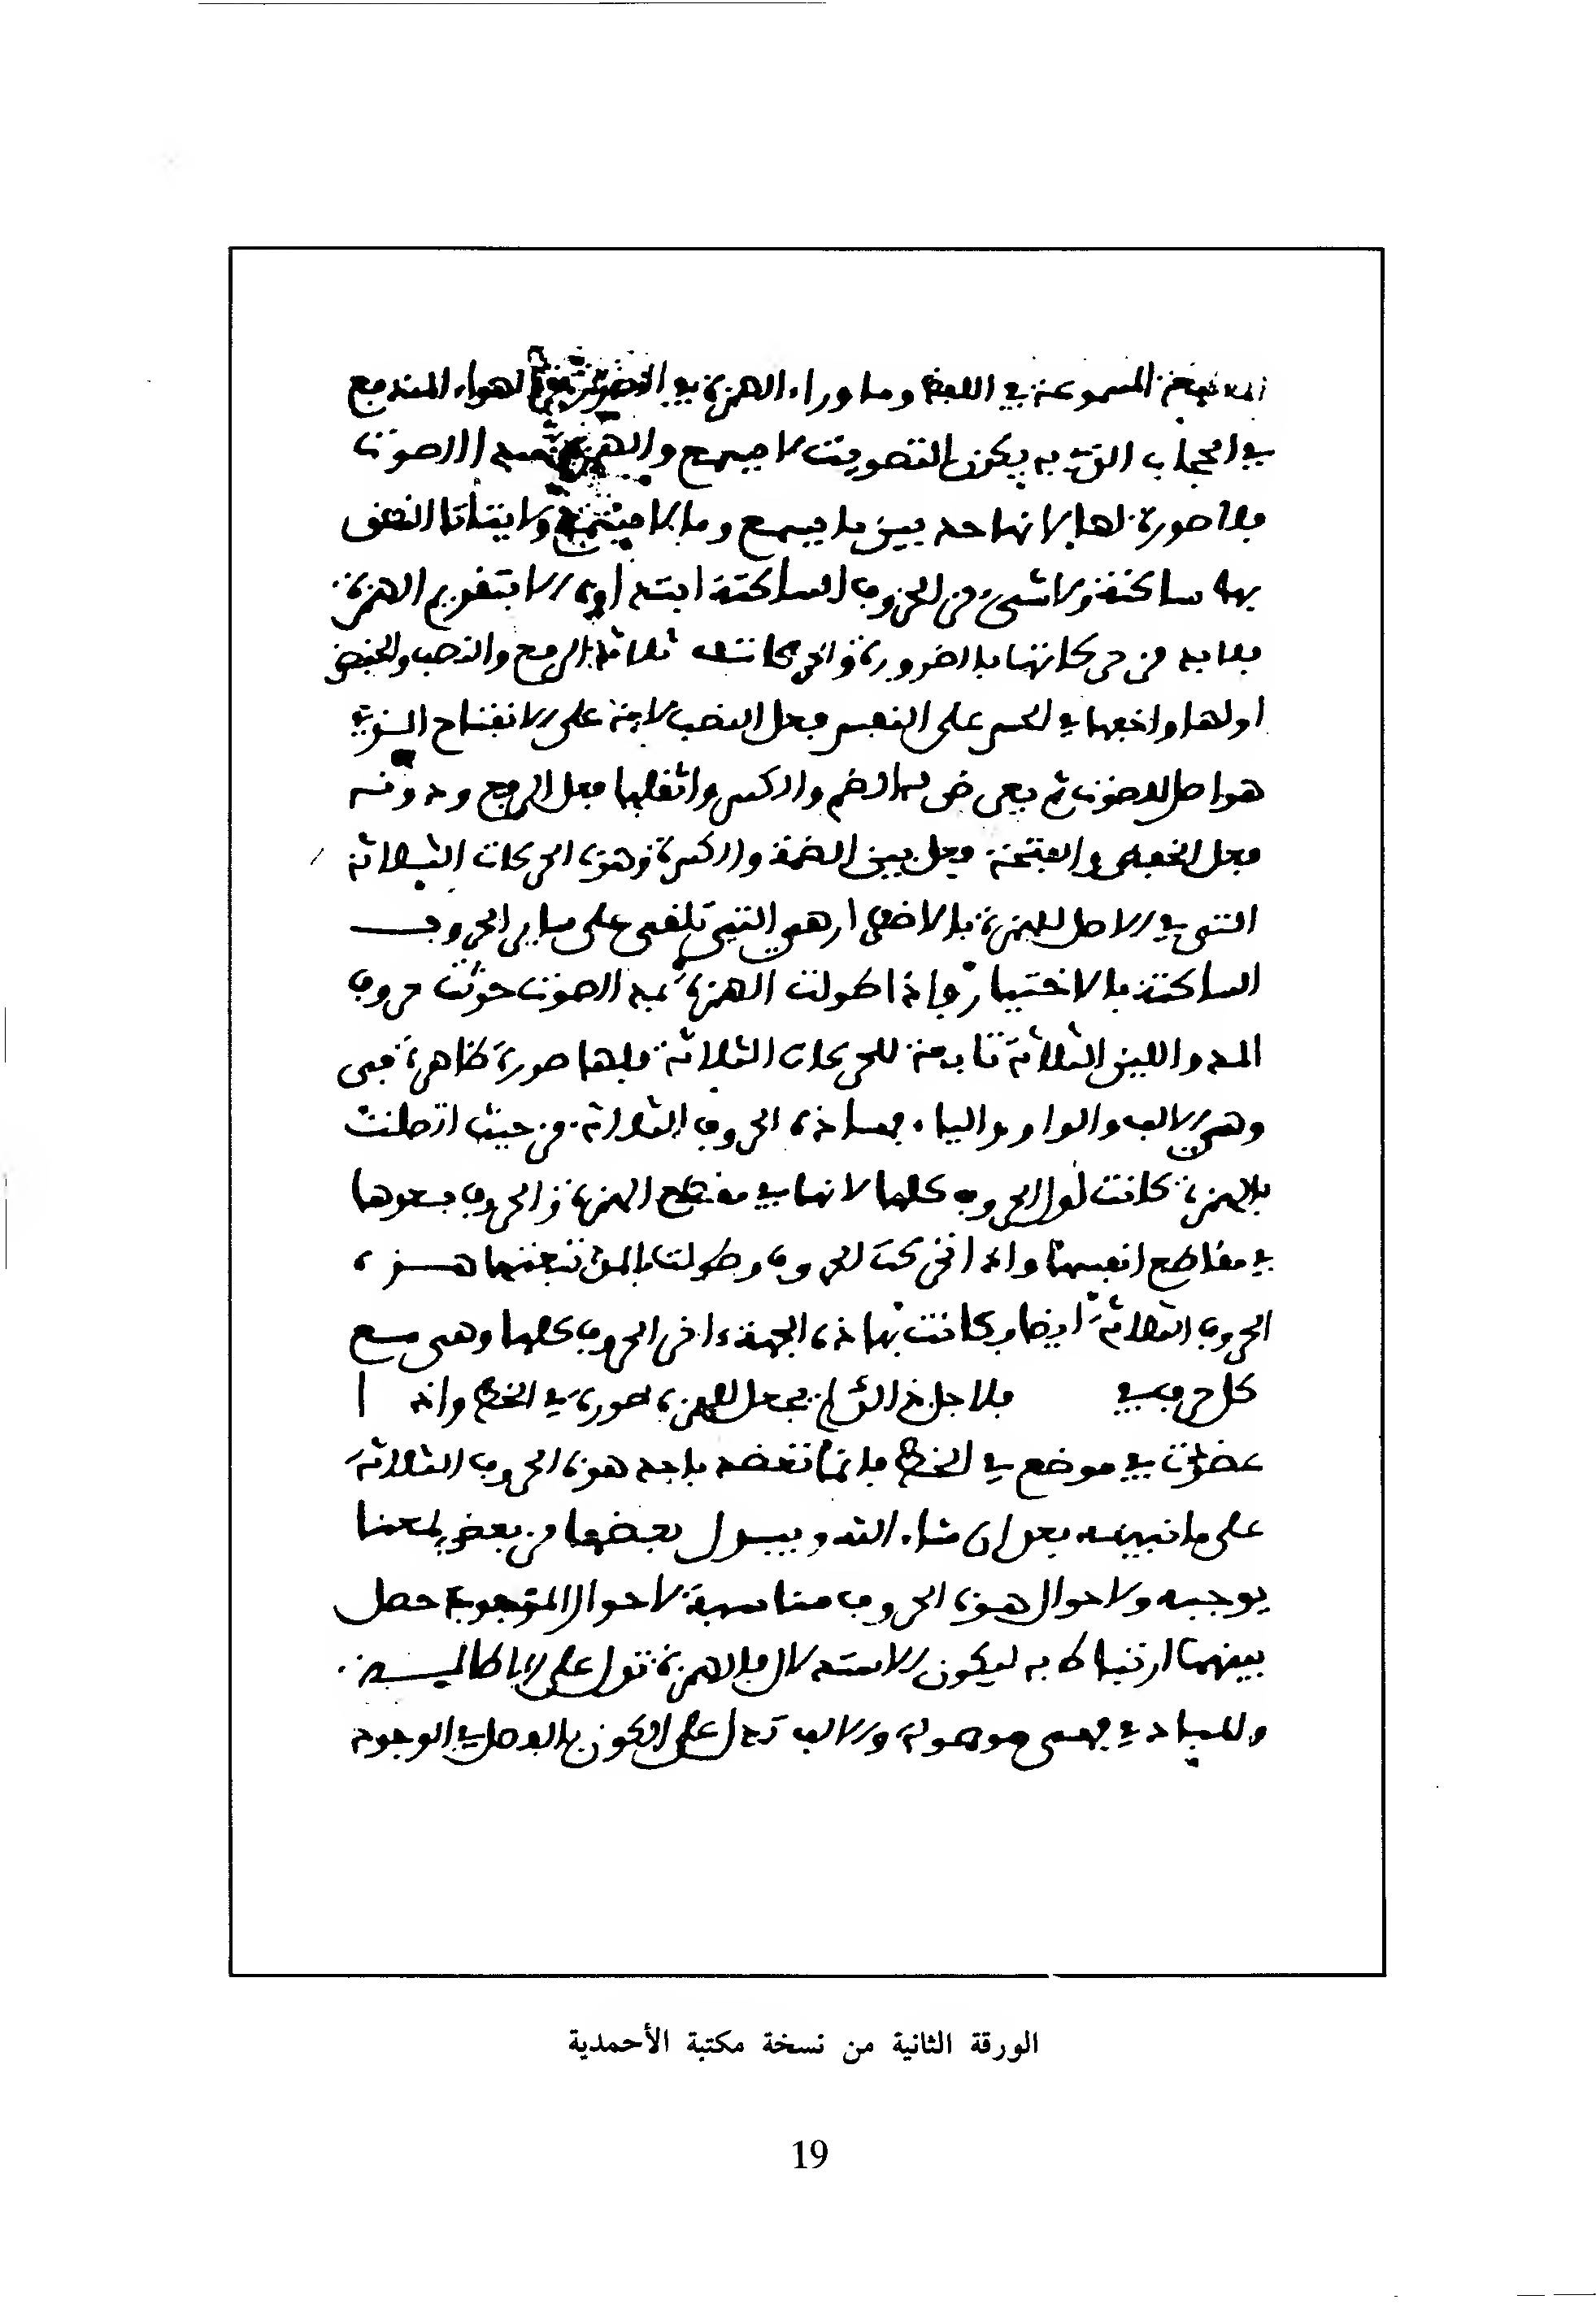 المسموعة في اللفظ وما وراء الهمزة في الهواء المندفع
في الحجاب الذي به يكون التصويت لا يسمع والهمزة الصوت
فلا صورة لها لانها حد بين ما يسمع وما لا يسمع ولا يتأتا النطق
بها ساكنة ولا شيء من الحروف الساكنة ابتداء الا بتقديم الهمزة
فلا بد من حركاتها بالضرورة والحركات ثلاثة الرفع والنصب والخفض
اولها واخفها في الحس على النفس فعل النصب لانه على الانفتاح الذي
هو اصل الصوت ثم يعرض لها الضم والكسر واثقلها فعل الرفع ودونه
فعل الخفض والفتحة فعل بين الضمة والكسرة وهذه الحركات الثلاثة
التي في الاصل للهمزة بالاضطرار هي التي تلقى على ساير الحروف
الساكنة بالاختيار واذا طولت الهمزة بمد الصوت حدثت حروف
المد واللين الثلاثة تابعة للحركات الثلاثة فلها صورة ظاهرة فهي
وهي الالف والواو والياء فهاذه الحروف الثلاثة من حيث اتصلت
بالهمزة كانت اول الحروف كلها لانها في مقطع الهمزة والحروف بعدها
في مقاطع انفسها واذا تحركت الحروف وطولت بالمد تبعتها هذه
الحروف الثلاثة ايضا فكانت بهاذه الجهة اخر الحروف كلها وهي مع
كل حرف في فلاجل ذالك لم يجعل للهمزة صورة في الخط واذا
عضدت في موضع في الخط فانما تعضد باحد هذه الحروف الثلاثة
على ما نبينه بعد ان شاء الله ويبدل بعضها من بعض لمعنا
يوجبه ولاحوال هذه الحروف مناسبة لاحوال الوجود حصل
بينهما ارتباط به ليكون الاستدلال فالهمزة تدل على الاصالة
والمبادي فهي موصولة والالف تدل على الكون بالفعل في الوجود
الورقة الثانية من نسخة مكتبة الأحمدية
19